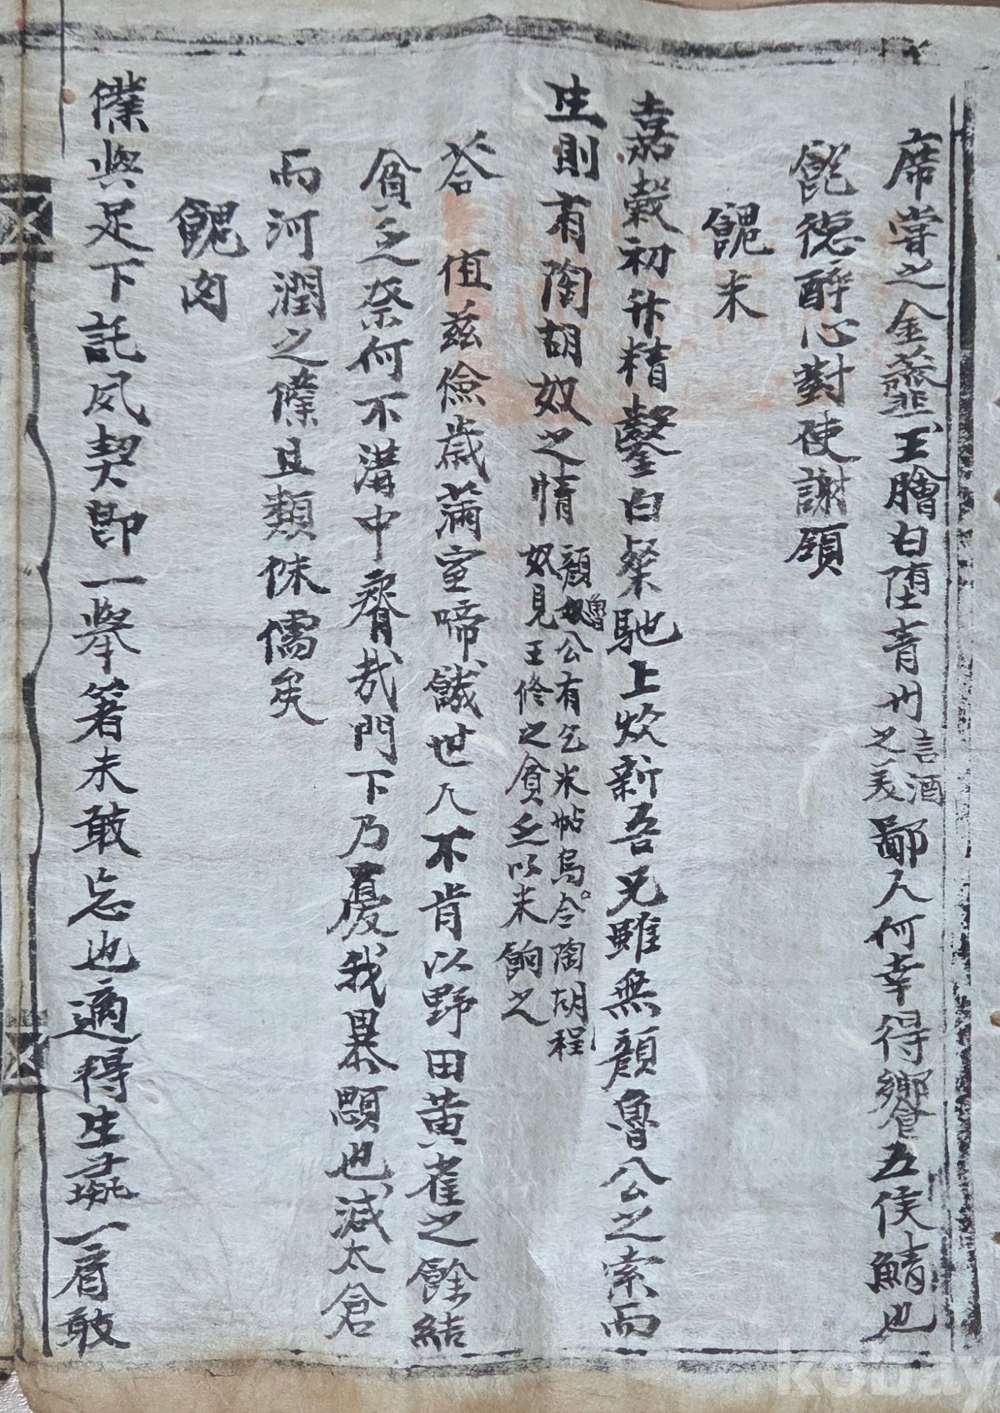 席嘗之金虀玉膾自墮青州言酒之美鄙人何幸得饗五侯鯖也
飽德醉心對使謝領
餽米
嘉穀初升精鑿白粲馳上炊新吾兄雖無顏魯公之索而
生則有陶胡奴之情顏魯公有乞米帖烏今陶胡程
奴見王修之貧乏以米餉之
答 値茲儉歲滿室啼饑世人不肯以野田黃雀之餘結
貧乏祭何不溝中瘠哉門下乃憂我暴顋也減太倉
而河潤之僕且類侏儒矣
餽肉
僕與足下託夙契卽一擧箸未敢忘也適得生彘一肩敢
kobay